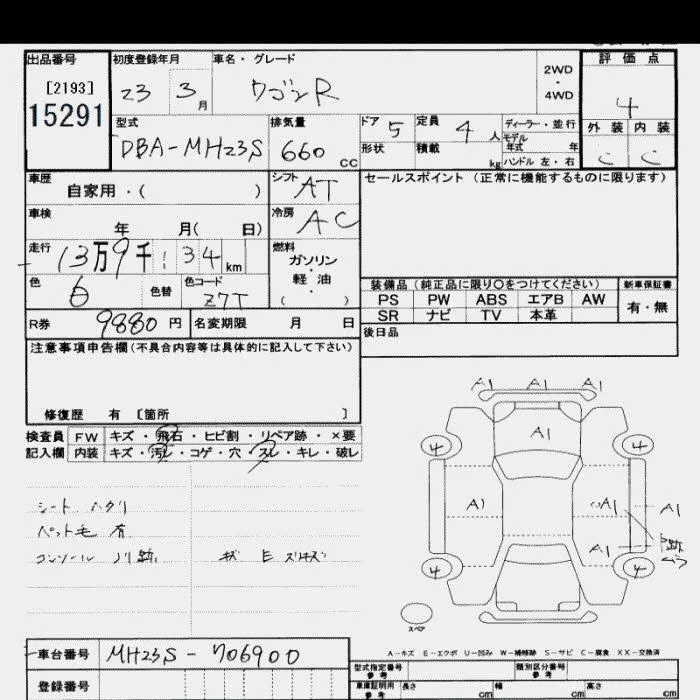 出品番号 初度登録年月 車名・グレード 2WD・4WD 評価点
[2193]
15291 23 3月 ワゴンR 4
型式 排気量 ドア 5 定員 4人 ディーラー・並行 外装 内装
DBA-MH23S 660cc 形状 積載 kg モデル年式 年 C C
ハンドル 左・右
車歴 自家用・( ) シフト AT セールスポイント(正常に機能するものに限ります)
車検 年 月( 日) 冷房 AC
走行 13万9千 34km 燃料 ガソリン・軽油・( )
色 色替 色コード Z7T 装備品(純正品に限り○をつけてください) 新車保証書
PS PW ABS エアB AW 有・無
SR ナビ TV 本革
R券 9880円 名変期限 月 日 後日品
注意事項申告欄(不具合内容等は具体的に記入して下さい)
修復歴 有 [箇所 ]
検査員 FW キズ・飛石・ヒビ割・リペア跡・×要
記入欄 内装 キズ・汚レ・コゲ・穴・スレ・キレ・破レ
シート ハタリ
ペット毛 有
コンソール ノリ跡 キズ E スリキズ
A1 A1 A1
A1
4 4
A1 A1 A1
A1 跡 ムラ
4 4
スペア
A-キズ E-エクボ U-凹み W-補修跡 S-サビ C-腐食 XX-交換済
車台番号 MH23S-706900 型式指定番号 参考 類別区分番号 参考
登録番号 車庫証明用 参考 長さ cm 幅 cm 高さ cm